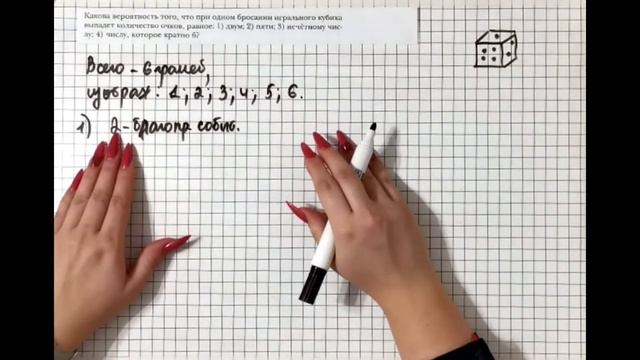 Какова вероятность того, что при одном бросании игрального кубика
выпадет количество очков, равное: 1) двум; 2) пяти; 3) нечётному чис-
лу; 4) числу, которое кратно 6?
Всего - 6 граней,
изображ: 1; 2; 3; 4; 5; 6.
1) 2 - благопр. событ.